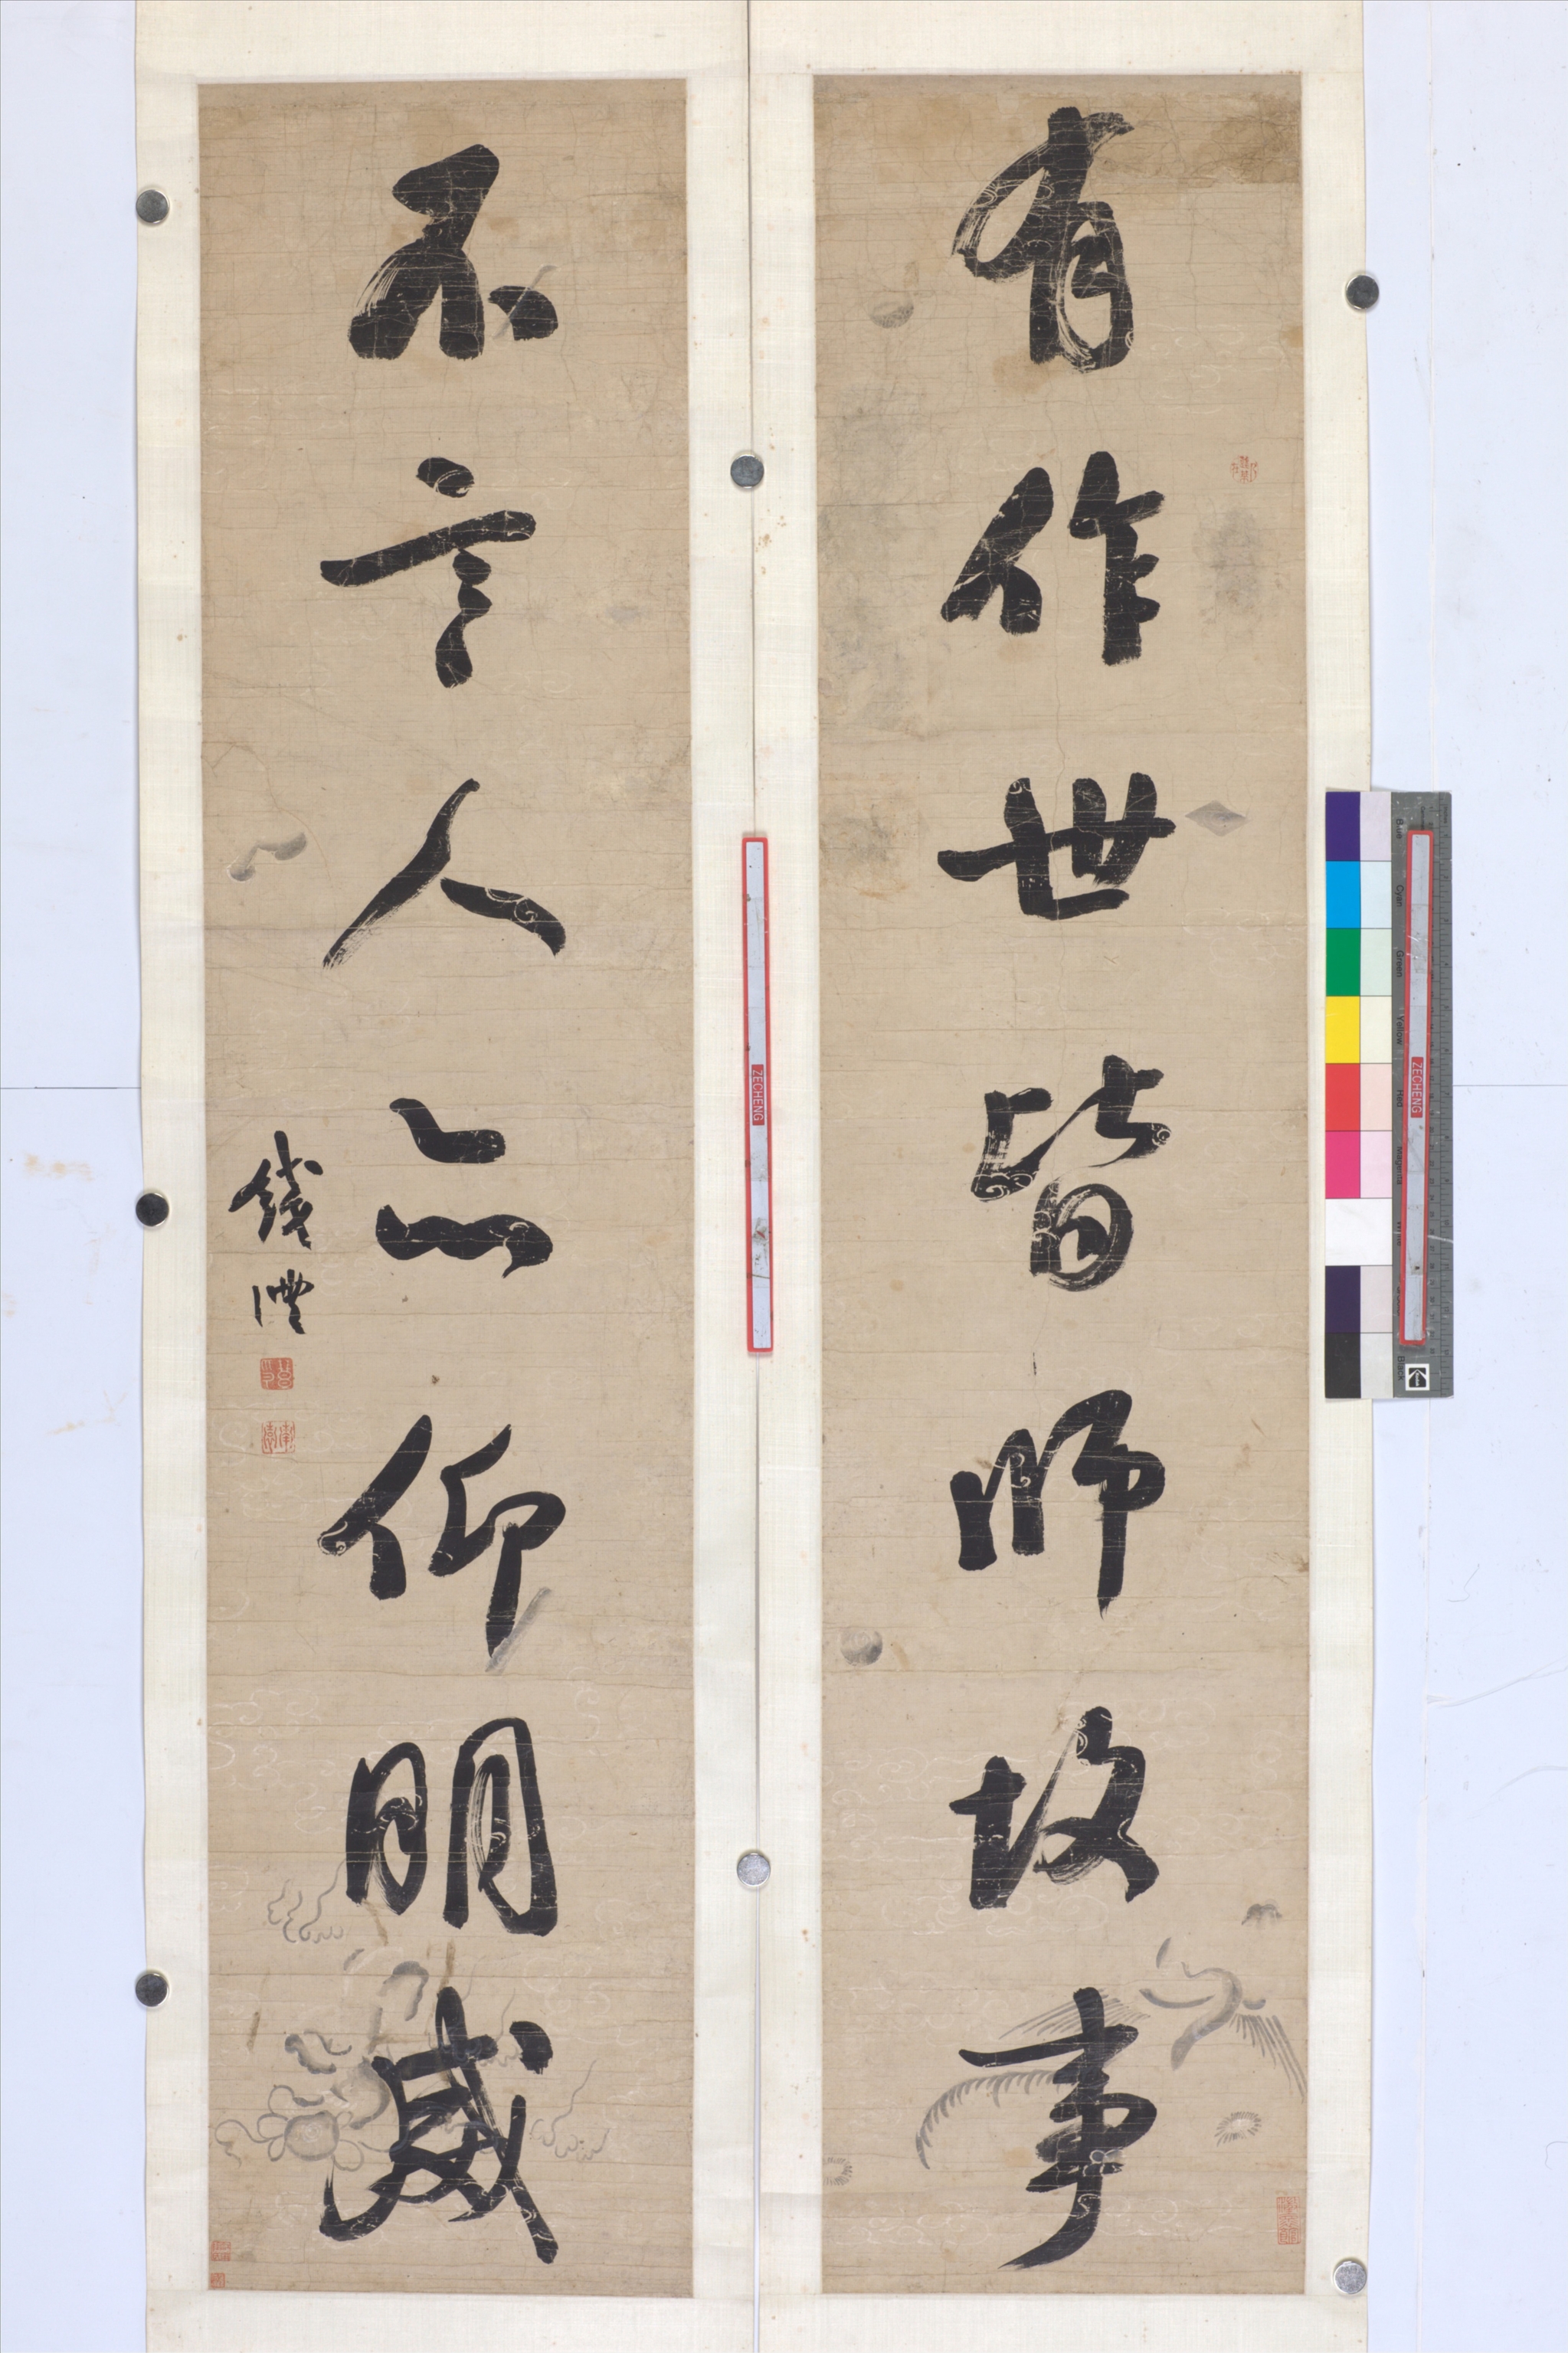 有作世皆師故事
不言人亦仰明威
錢灃
ZECHENG
ZECHENG
Blue
Cyan
Green
Yellow
Red
Magenta
White
Black
Kodak